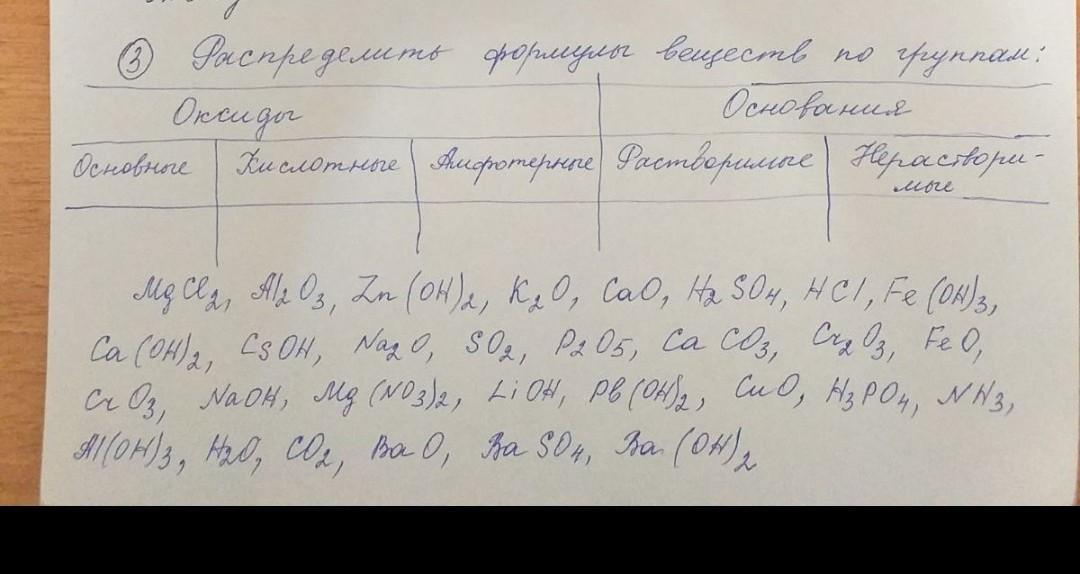 ③ Распределить формулы веществ по группам:
Оксиды Основания
Основные Кислотные Амфотерные Растворимые Нераствори-
мые
MgCl₂, Al₂O₃, Zn(OH)₂, K₂O, CaO, H₂SO₄, HCl, Fe(OH)₃,
Ca(OH)₂, CsOH, Na₂O, SO₂, P₂O₅, CaCO₃, Cr₂O₃, FeO,
CrO₃, NaOH, Mg(NO₃)₂, LiOH, Pb(OH)₂, CuO, H₃PO₄, NH₃,
Al(OH)₃, H₂O, CO₂, BaO, BaSO₄, Ba(OH)₂